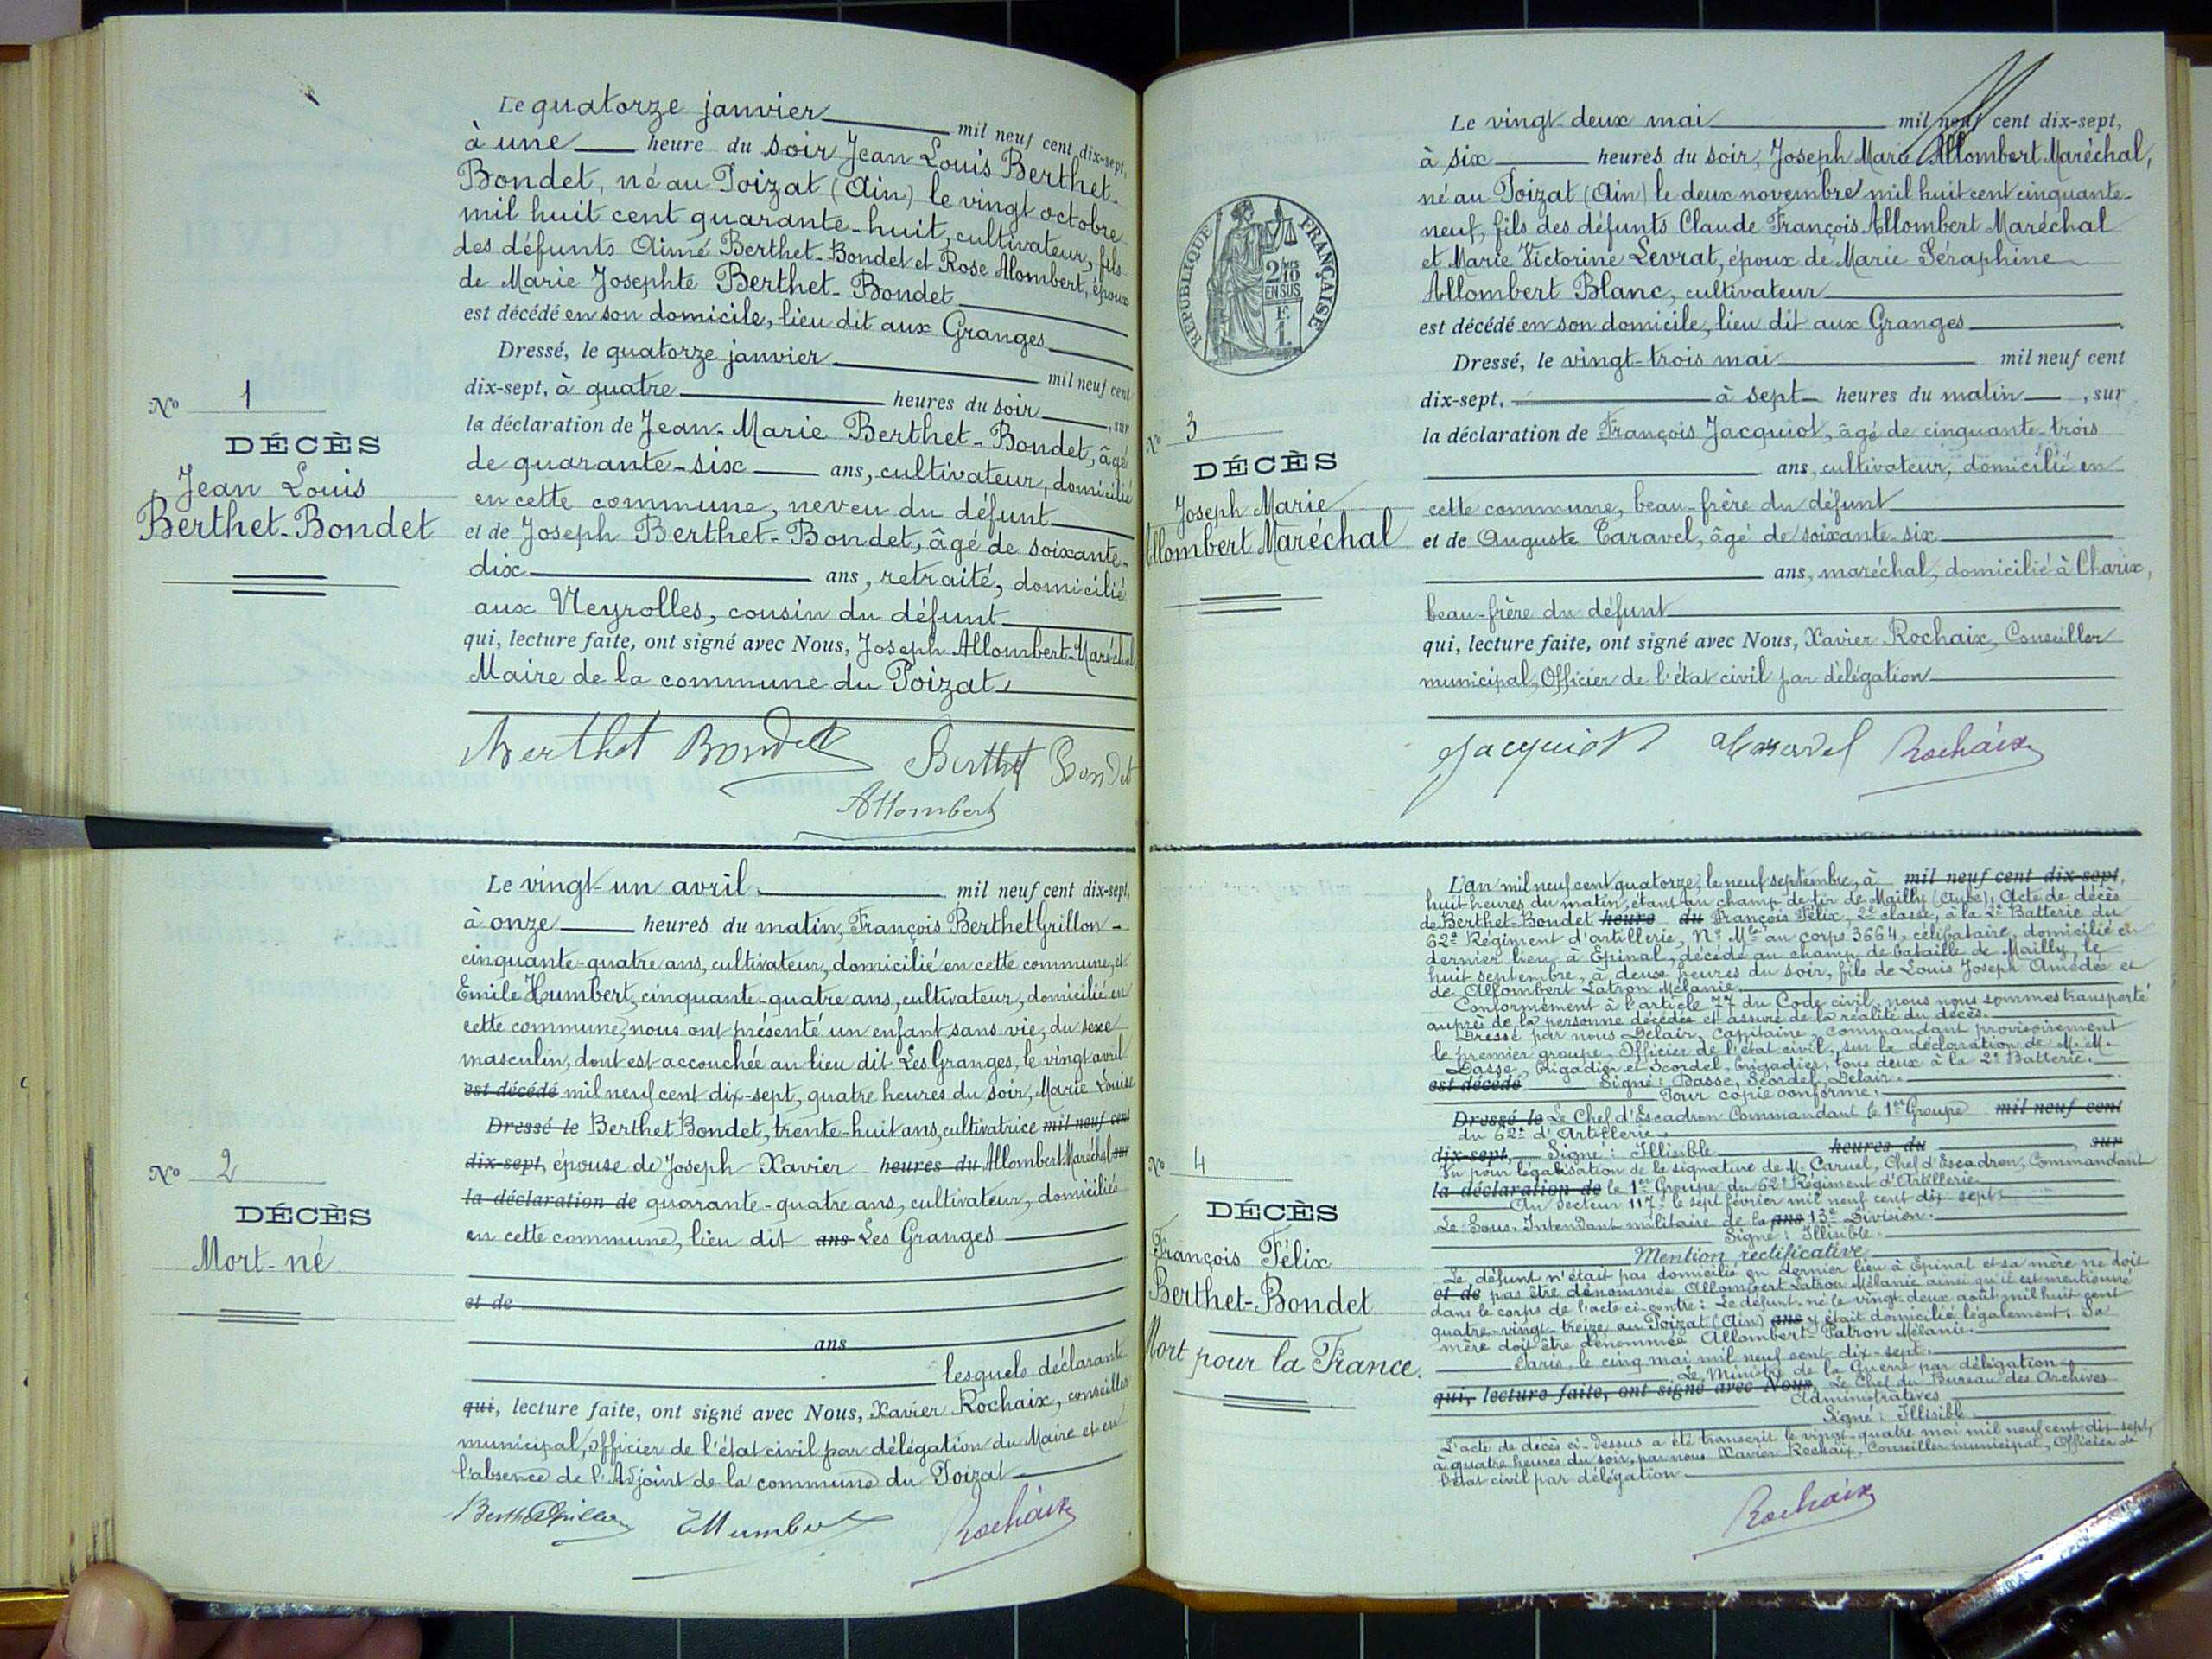 Le quatorze janvier mil neuf cent dix-sept,
à une heure du soir Jean Louis Berthet-
Bondet, né au Poizat (Ain) le vingt octobre
mil huit cent quarante-huit, cultivateur, fils
des défunts Aimé Berthet-Bondet et Rose Alombert, époux
de Marie Josephte Berthet-Bondet
est décédé en son domicile, lieu dit aux Granges
Dressé, le quatorze janvier mil neuf cent
dix-sept, à quatre heures du soir, sur
la déclaration de Jean-Marie Berthet-Bondet, âgé
de quarante-six ans, cultivateur, domicilié
en cette commune, neveu du défunt
et de Joseph Berthet-Bondet, âgé de soixante-
dix ans, retraité, domicilié
aux Neyrolles, cousin du défunt
qui, lecture faite, ont signé avec Nous, Joseph Allombert-Maréchal
Maire de la commune du Poizat
Berthet Bondet Berthet Bondet
Allombert
No 1
DÉCÈS
Jean Louis
Berthet-Bondet
Le vingt-un avril mil neuf cent dix-sept,
à onze heures du matin, François Berthet Grillon
cinquante-quatre ans, cultivateur, domicilié en cette commune, et
Emile Humbert, cinquante-quatre ans, cultivateur, domicilié en
cette commune, nous ont présenté un enfant sans vie, du sexe
masculin, dont est accouchée au lieu dit Les Granges, le vingt avril
est décédé mil neuf cent dix-sept, quatre heures du soir, Marie Louise
Dressé le Berthet Bondet, trente-huit ans, cultivatrice mil neuf cent
dix-sept, épouse de Joseph Xavier heures du Allombert Maréchal sur
la déclaration de quarante-quatre ans, cultivateur, domiciliés
en cette commune, lieu dit ans Les Granges
et de
ans
lesquels déclarants
qui, lecture faite, ont signé avec Nous, Xavier Rochaix, conseiller
municipal, officier de l'état civil par délégation du Maire et en
l'absence de l'Adjoint de la commune du Poizat
Berthet Grillon E Humbert Rochaix
No 2
DÉCÈS
Mort-né
Le vingt-deux mai mil neuf cent dix-sept,
à six heures du soir, Joseph Marie Allombert Maréchal,
né au Poizat (Ain) le deux novembre mil huit cent cinquante-
neuf, fils des défunts Claude François Allombert Maréchal
et Marie Victorine Levrat, époux de Marie Séraphine
Allombert Blanc, cultivateur
est décédé en son domicile, lieu dit aux Granges
Dressé, le vingt-trois mai mil neuf cent
dix-sept, à sept heures du matin, sur
la déclaration de François Jacquiot, âgé de cinquante-trois
ans, cultivateur, domicilié en
cette commune, beau-frère du défunt
et de Auguste Caravel, âgé de soixante-six
ans, maréchal, domicilié à Charix,
beau-frère du défunt
qui, lecture faite, ont signé avec Nous, Xavier Rochaix, Conseiller
municipal, Officier de l'état civil par délégation
Jacquiot Rochaix
REPUBLIQUE FRANÇAISE
2/10
EN SUS
F.
1.
No 3
DÉCÈS
Joseph Marie
Allombert Maréchal
L'an mil neuf cent quatorze, le neuf septembre, à mil neuf cent dix-sept,
huit heures du matin, étant au champ de tir de Mailly (Aube), Acte de décès
de Berthet-Bondet heure du François Félix, 2e classe, à la 2e Batterie du
62e Régiment d'artillerie, No Mle au corps 3664, célibataire, domicilié en
dernier lieu à Epinal, décédé au champ de bataille de Mailly, le
huit septembre, à deux heures du soir, fils de Louis Joseph Amédée et
de Allombert Latron Mélanie.
Conformément à l'article 77 du Code civil, nous nous sommes transporté
auprès de la personne décédée et assuré de la réalité du décès.
Dressé par nous Delair, capitaine, commandant provisoirement
le premier groupe, Officier de l'état civil, sur la déclaration de M.M.
Dasse, brigadier et Scordel, brigadier, tous deux à la 2e Batterie.
est décédé Signé: Dasse, Scordel, Delair.
Pour copie conforme:
Dressé le Le Chef d'Escadron Commandant le 1er Groupe mil neuf cent
du 62e d'Artillerie
dix-sept, Signé: Illisible heures du, sur
Vu pour légalisation de la signature de M. Caruel, Chef d'Escadron, Commandant
la déclaration de le 1er Groupe du 62e Régiment d'Artillerie
Au Secteur 117, le sept février mil neuf cent dix-sept.
Le Sous-Intendant militaire de la ans 13e Division.
Signé: Illisible.
Mention rectificative
Le défunt n'était pas domicilié en dernier lieu à Epinal et sa mère ne doit
et de pas être dénommée Allombert Latron Mélanie ainsi qu'il est mentionné
dans le corps de l'acte ci-contre: Le défunt né le vingt-deux août mil huit cent
quatre-vingt-treize au Poizat (Ain) ans y était domicilié légalement. Sa
mère doit être dénommée Allombert Patron Mélanie.
Paris, le cinq mai mil neuf cent dix-sept.
Le Ministre de la Guerre par délégation
qui, lecture faite, ont signé avec Nous, Le Chef du Bureau des Archives
Administratives
Signé: Illisible.
L'acte de décès ci-dessus a été transcrit le vingt-quatre mai mil neuf cent dix-sept,
à quatre heures du soir, par nous Xavier Rochaix, Conseiller municipal, Officier de
l'état civil par délégation
Rochaix
No 4
DÉCÈS
François Félix
Berthet-Bondet
Mort pour la France.